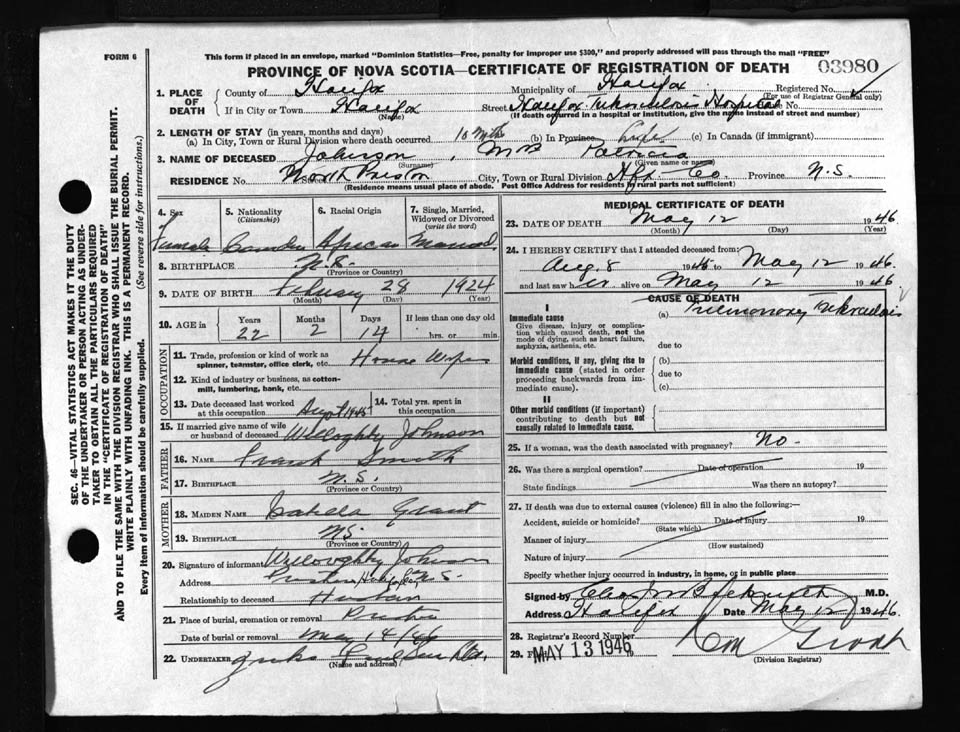 FORM 6
This form if placed in an envelope, marked "Dominion Statistics—Free, penalty for improper use $300," and properly addressed will pass through the mail "FREE"
PROVINCE OF NOVA SCOTIA—CERTIFICATE OF REGISTRATION OF DEATH 03980
1. PLACE OF DEATH
County of Halifax Municipality of Halifax Registered No.
(For use of Registrar General only)
If in City or Town Halifax Street Halifax Tuberculosis Hospital No.
(Name) (If death occurred in a hospital or institution, give the name instead of street and number)
2. LENGTH OF STAY (in years, months and days)
(a) In City, Town or Rural Division where death occurred 10 mths (b) In Province Life (c) In Canada (if immigrant)
3. NAME OF DECEASED Johnson, Mrs Patricia
(Surname) (Given name or names)
RESIDENCE No. Street North Preston City, Town or Rural Division Hfx. Co. Province N.S.
(Residence means usual place of abode. Post Office Address for residents in rural parts not sufficient)
4. Sex
Female
5. Nationality (Citizenship)
Canadian
6. Racial Origin
African
7. Single, Married, Widowed or Divorced (write the word)
Married
8. BIRTHPLACE N.S.
(Province or Country)
9. DATE OF BIRTH February 28 1924
(Month) (Day) (Year)
10. AGE in Years Months Days If less than one day
22 2 14 hrs. or min.
OCCUPATION
11. Trade, profession or kind of work as spinner, teamster, office clerk, etc. House Wife
12. Kind of industry or business, as cotton-mill, lumbering, bank, etc.
13. Date deceased last worked at this occupation Aug 1945
14. Total yrs. spent in this occupation
15. If married give name of wife or husband of deceased Willoghby Johnson
FATHER
16. NAME Frank Smith
17. BIRTHPLACE N.S.
(Province or Country)
MOTHER
18. MAIDEN NAME Isabella Grant
19. BIRTHPLACE NS
(Province or Country)
20. Signature of informant Willoghby Johnson
Address Preston, Halifax Co. N.S.
Relationship to deceased Husban
21. Place of burial, cremation or removal Preston
Date of burial or removal May 14/46
22. UNDERTAKER
(Name and address)
MEDICAL CERTIFICATE OF DEATH
23. DATE OF DEATH May 12 1946
(Month) (Day) (Year)
24. I HEREBY CERTIFY that I attended deceased from:
Aug. 8 1945 to May 12 1946
and last saw her alive on May 12 1946
CAUSE OF DEATH
I
Immediate cause (a) Pulmonary Tuberculosis
Give disease, injury or complication which caused death, not the mode of dying, such as heart failure, asphyxia, asthenia, etc.
due to
Morbid conditions, if any, giving rise to immediate cause (stated in order proceeding backwards from immediate cause).
(b)
due to
(c)
II
Other morbid conditions (if important) contributing to death but not causally related to immediate cause.
25. If a woman, was the death associated with pregnancy? No.
26. Was there a surgical operation? Date of operation 19
State findings Was there an autopsy?
27. If death was due to external causes (violence) fill in also the following:—
Accident, suicide or homicide? Date of injury 19
(State which)
Manner of injury
(How sustained)
Nature of injury
Specify whether injury occurred in industry, in home, or in public place
Signed by M.D.
Address Halifax Date May 12 1946.
28. Registrar's Record Number
29. MAY 13 1946
(Division Registrar)
SEC. 46—VITAL STATISTICS ACT MAKES IT THE DUTY
OF THE UNDERTAKER OR PERSON ACTING AS UNDERTAKER
TO OBTAIN ALL THE PARTICULARS REQUIRED
IN THE "CERTIFICATE OF REGISTRATION OF DEATH"
AND TO FILE THE SAME WITH THE DIVISION REGISTRAR WHO SHALL ISSUE THE BURIAL PERMIT.
WRITE PLAINLY WITH UNFADING INK. THIS IS A PERMANENT RECORD.
Every item of information should be carefully supplied. (See reverse side for instructions.)